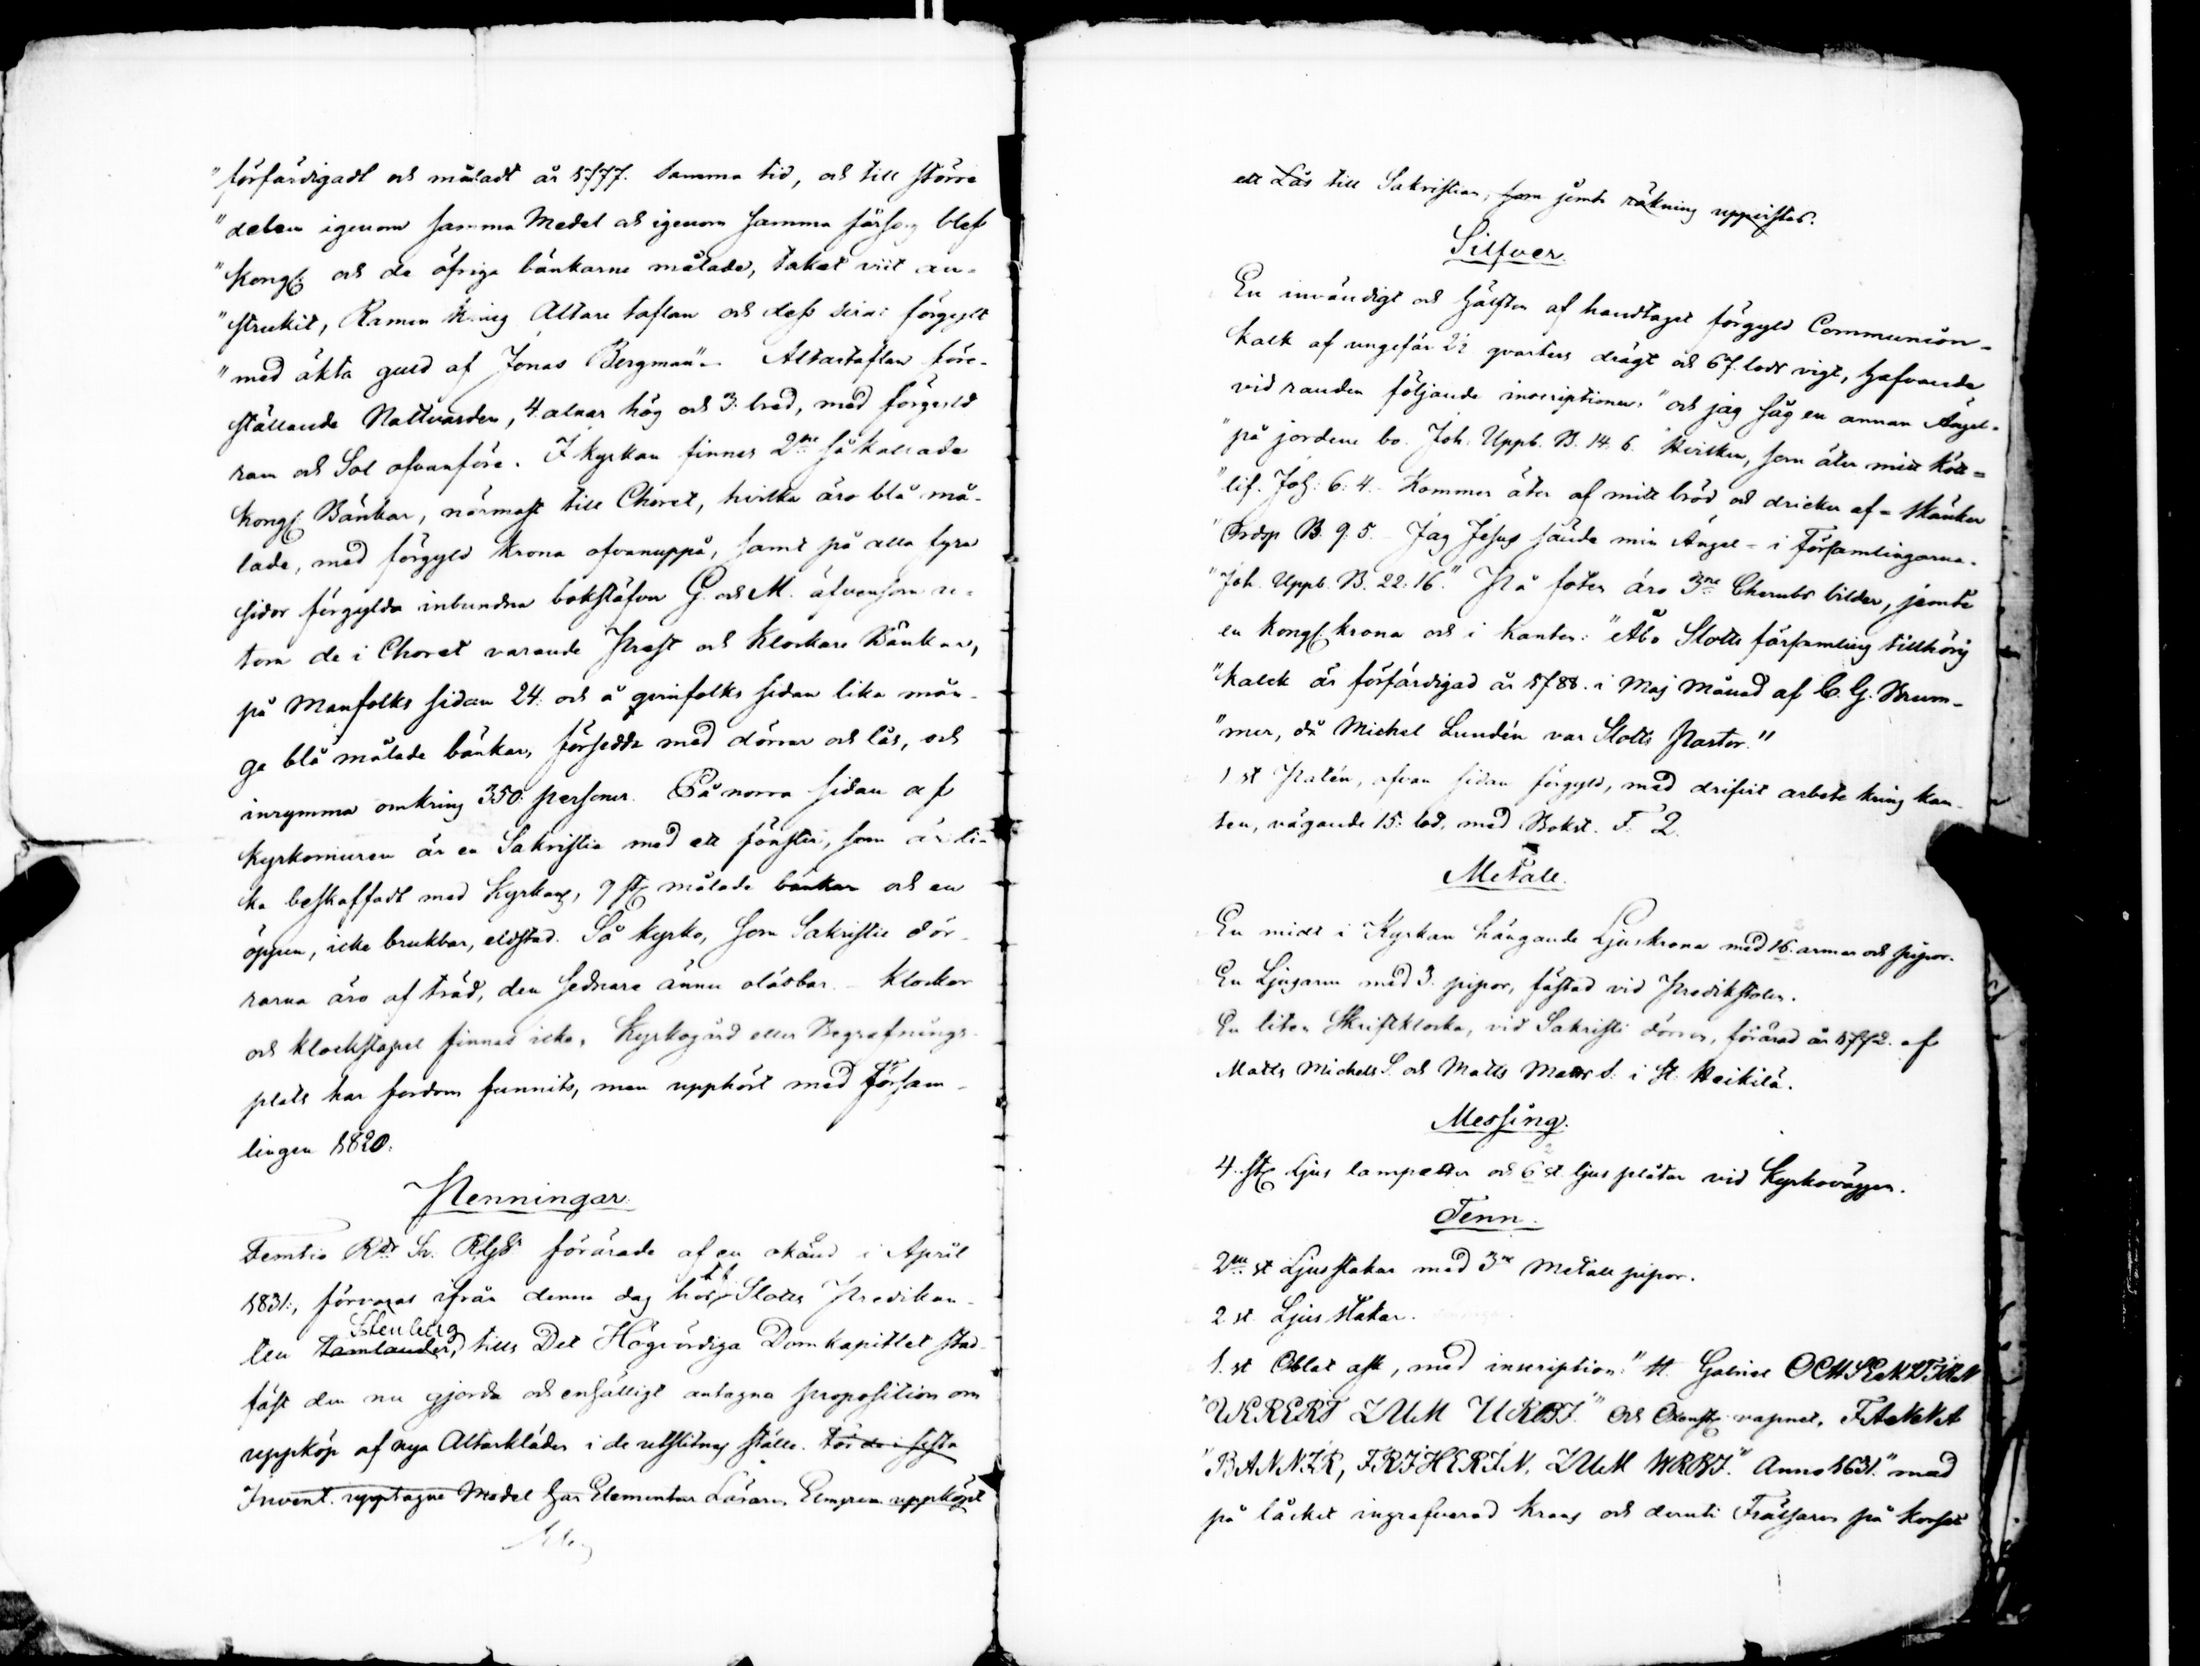 "förfärdigadt och måladt år 1777. Samma tid, och till större
"delen igenom samma Medel och igenom samma försorg blef
"Kongl: och de öfriga bänkarne målade, taket vitt an-
"strukit, Ramen kring Altare taflan och dess sirat förgylt
"med äkta guld af Jonas Bergman". Altartaflan före-
ställande Nattvarden, 4. alnar hög och 3. bred, med förgyld
ram och Sol ofvanföre. I Kyrkan finnes 2ne så kallade
Kongl: Bänkar, närmast till Choret, hvilka äro blå må-
lade, med förgyld Krona ofvanuppå, samt på alla fyra
sidor förgylda inbundna bokstäfver G. och M. äfvensom
de i Choret varande Prest och Klockare Bänkar,
på Manfolks sidan 24. och å qvinfolks sidan lika mån-
ga blå målade bänkar, försedda med dörrar och lås, och
inrymma omkring 350. personer. På norra sidan af
Kyrkomuren är en Sakristia med ett fönster, som är li-
ka beskaffadt med Kyrkans, 9 st: målade bänkar och en
öppen, icke brukbar, eldstad. Så kyrko, som Sakristie dör-
rarna äro af träd, den sednare ännu olåsbar. - Klockor
och klockstapel finnas icke. Kyrkogård eller Begrafnings-
plats har fordom funnits, men upphört med Försam-
lingen 1820.
Penningar.
Femtio Rdr Sv. Rlgs förärade af en okänd i April
1831., förvaras ifrån denna dag hos Slotts Predikan-
Stenberg
ten Tamlander, tills Det Högvördiga Domkapitlet stad-
fäst den nu gjorda och ensälligt antagna proposition om
uppköp af nya Altarkläder i de utslitnas ställe. För de i sista
Invent. upptagne Medel har Elementar Läraren Elmgren uppköpt
ett Lås till Sakristian, som jemte räkning uppvistes.
Silfver.
En invändigt och hälften af handtaget förgyld Communion-
kalk af ungefär 2½ qvarters drägt och 67. lods vigt, hafvande
vid randen följande inscriptioner: "och jag såg en annan Ängel-
"på jordene bo. Joh. Uppb. B. 14. 6. Hvilken, som äter mitt kött =
"lif. Joh: 6: 4. - Kommer äter af mitt bröd och dricker af = skänker
"Ordsp B. 9. 5. - Jag Jesus sände min Ängel - i Församlingarna.
"Joh. Uppb. B. 22: 16." På foten äro 3ne Cherubs bilder, jemte
en Kongl: Krona och i kanten: "Åbo Slotts församling tillhörig
"kalck är förfärdigad år 1788. i Maj Månad af C. G. Brum-
"mer, då Michel Lundén var Slotts Pastor."
1 st Patén, ofvan sidan förgyld, med drifvit arbete kring kan-
ten, vägande 15: lod, med Bokst. F: 2.
Metall.
En midt i Kyrkan hängande Ljuskrona med 16. armar och pipor.
En Ljusarm med 3. pipor, fästad vid Predikstolen.
En liten Skriftklocka, vid Sakristi dörren, förärad år 1772. af
Matts Michels S. och Matts Matts S. i St. Heikilä.
Messing.
4. st: Ljus lampetter och 6 st ljus plåtar vid Kyrkoväggen.
Tenn.
2ne st Ljusstakar med 3ne Metall pipor.
2 st Ljus stakar.
1. st Oblat ask, med inscription: "H. Gabriel OCHSENSTIRN
"WERERT ZUM UKBI." och Oxenst: vapnet, FANNA
"BANNIR, FRIHERIN, ZUM WRBI." Anno 1631." med
på låcket ingrafverad Krans och deruti Frälsaren på korset